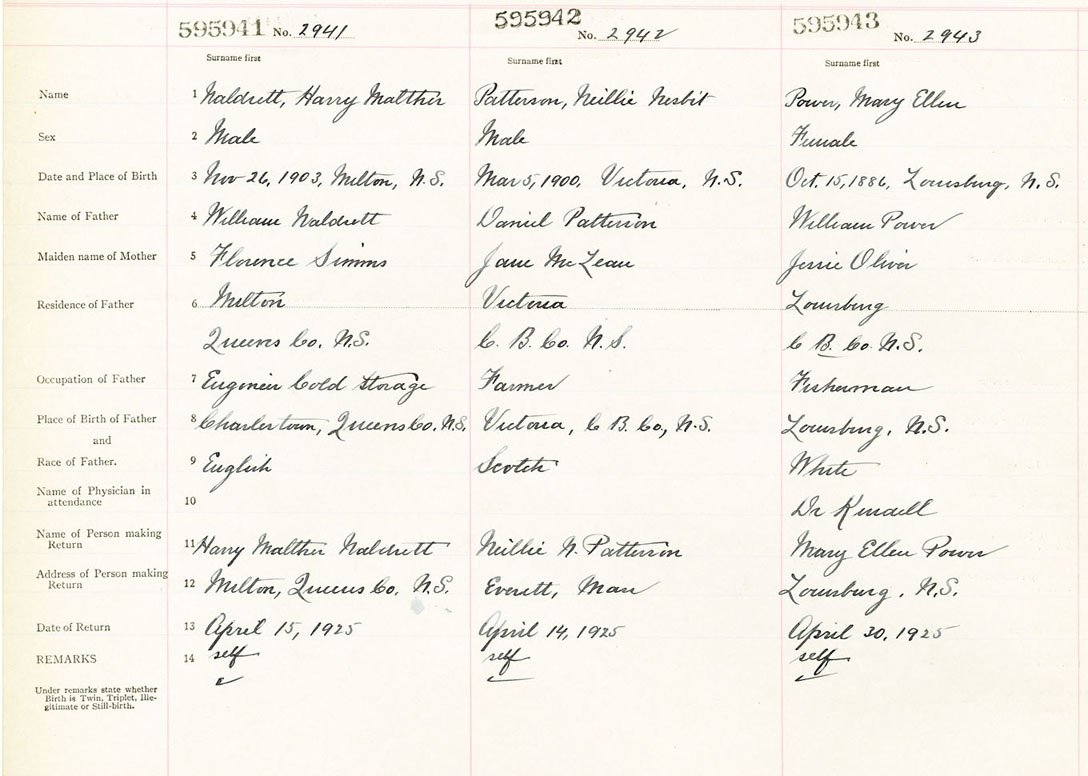 595941 No. 2941 595942 No. 2942 595943 No. 2943
Surname first Surname first Surname first
Name 1 Naldrett, Harry Malther Patterson, Neillie Nesbit Power, Mary Ellen
Sex 2 Male Male Female
Date and Place of Birth 3 Nov 26, 1903, Milton, N.S. Mar 5, 1900, Victoria, N.S. Oct. 15, 1886, Louisburg, N.S.
Name of Father 4 William Naldrett Daniel Patterson William Power
Maiden name of Mother 5 Florence Simms Jane McLean Jessie Oliver
Residence of Father 6 Milton Victoria Louisburg
Queens Co. N.S. C. B. Co. N.S. C B. Co. N.S.
Occupation of Father 7 Engineer Cold Storage Farmer Fisherman
Place of Birth of Father 8 Charlestown, Queens Co. N.S. Victoria, C B. Co, N.S. Louisburg, N.S.
and
Race of Father. 9 English Scotch White
Name of Physician in
attendance 10 Dr Kendell
Name of Person making
Return 11 Harry Malther Naldrett Neillie N. Patterson Mary Ellen Power
Address of Person making
Return 12 Milton, Queens Co. N.S. Everett, Mass Louisburg, N.S.
Date of Return 13 April 15, 1925 April 14, 1925 April 30, 1925
REMARKS 14 self self self
Under remarks state whether
Birth is Twin, Triplet, Ille-
gitimate or Still-birth.